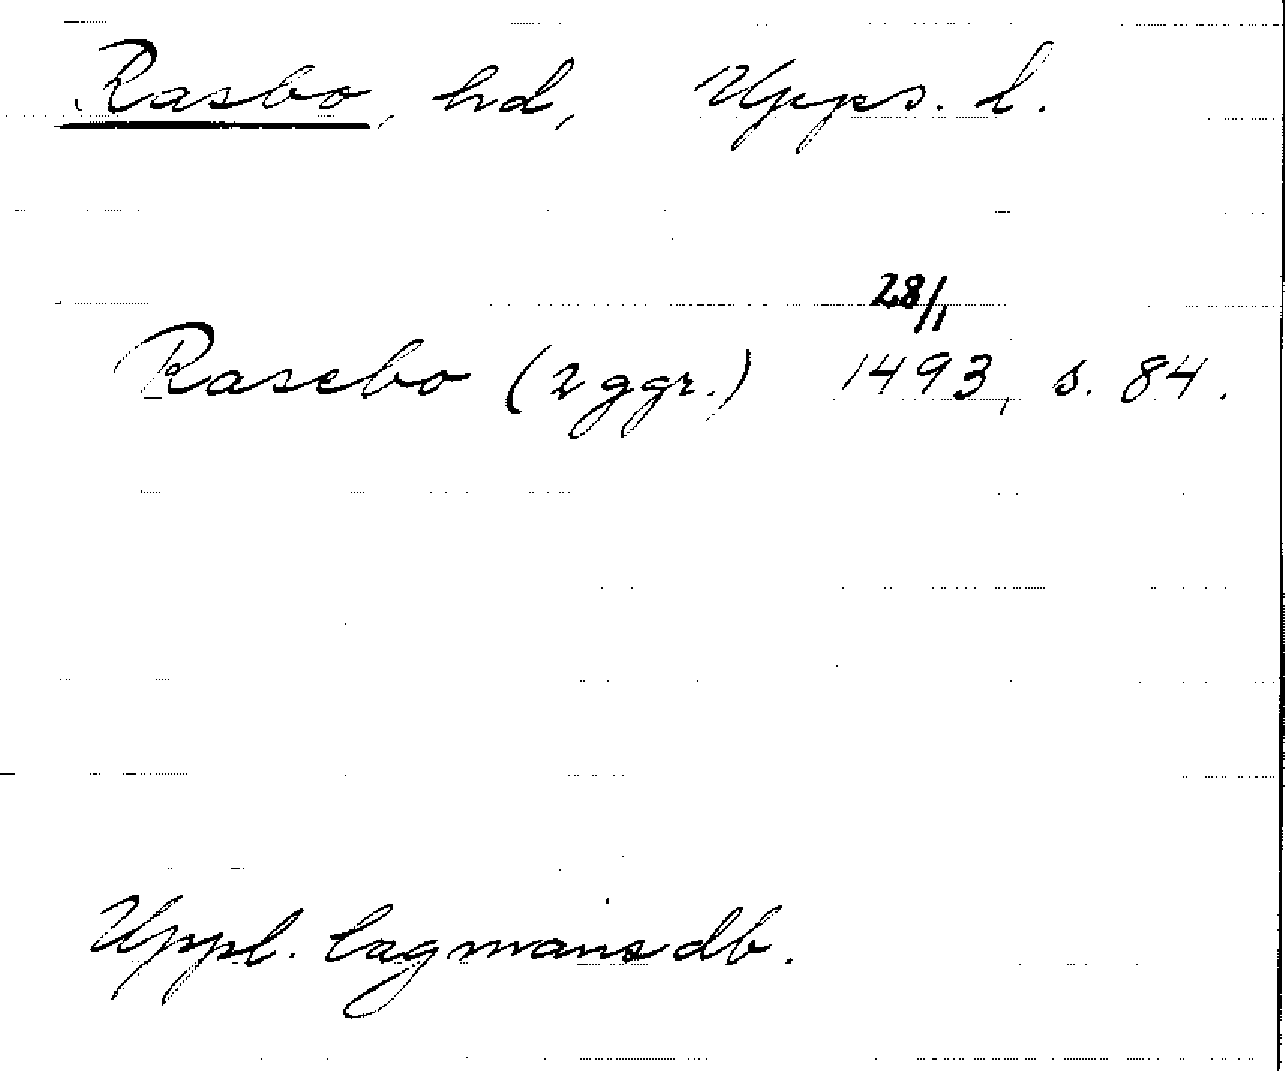 Rasbo, hd, Upps. l.
28/1
Rasebo (2 ggr.) 1493, s. 84.
Uppl. lagmansdb.